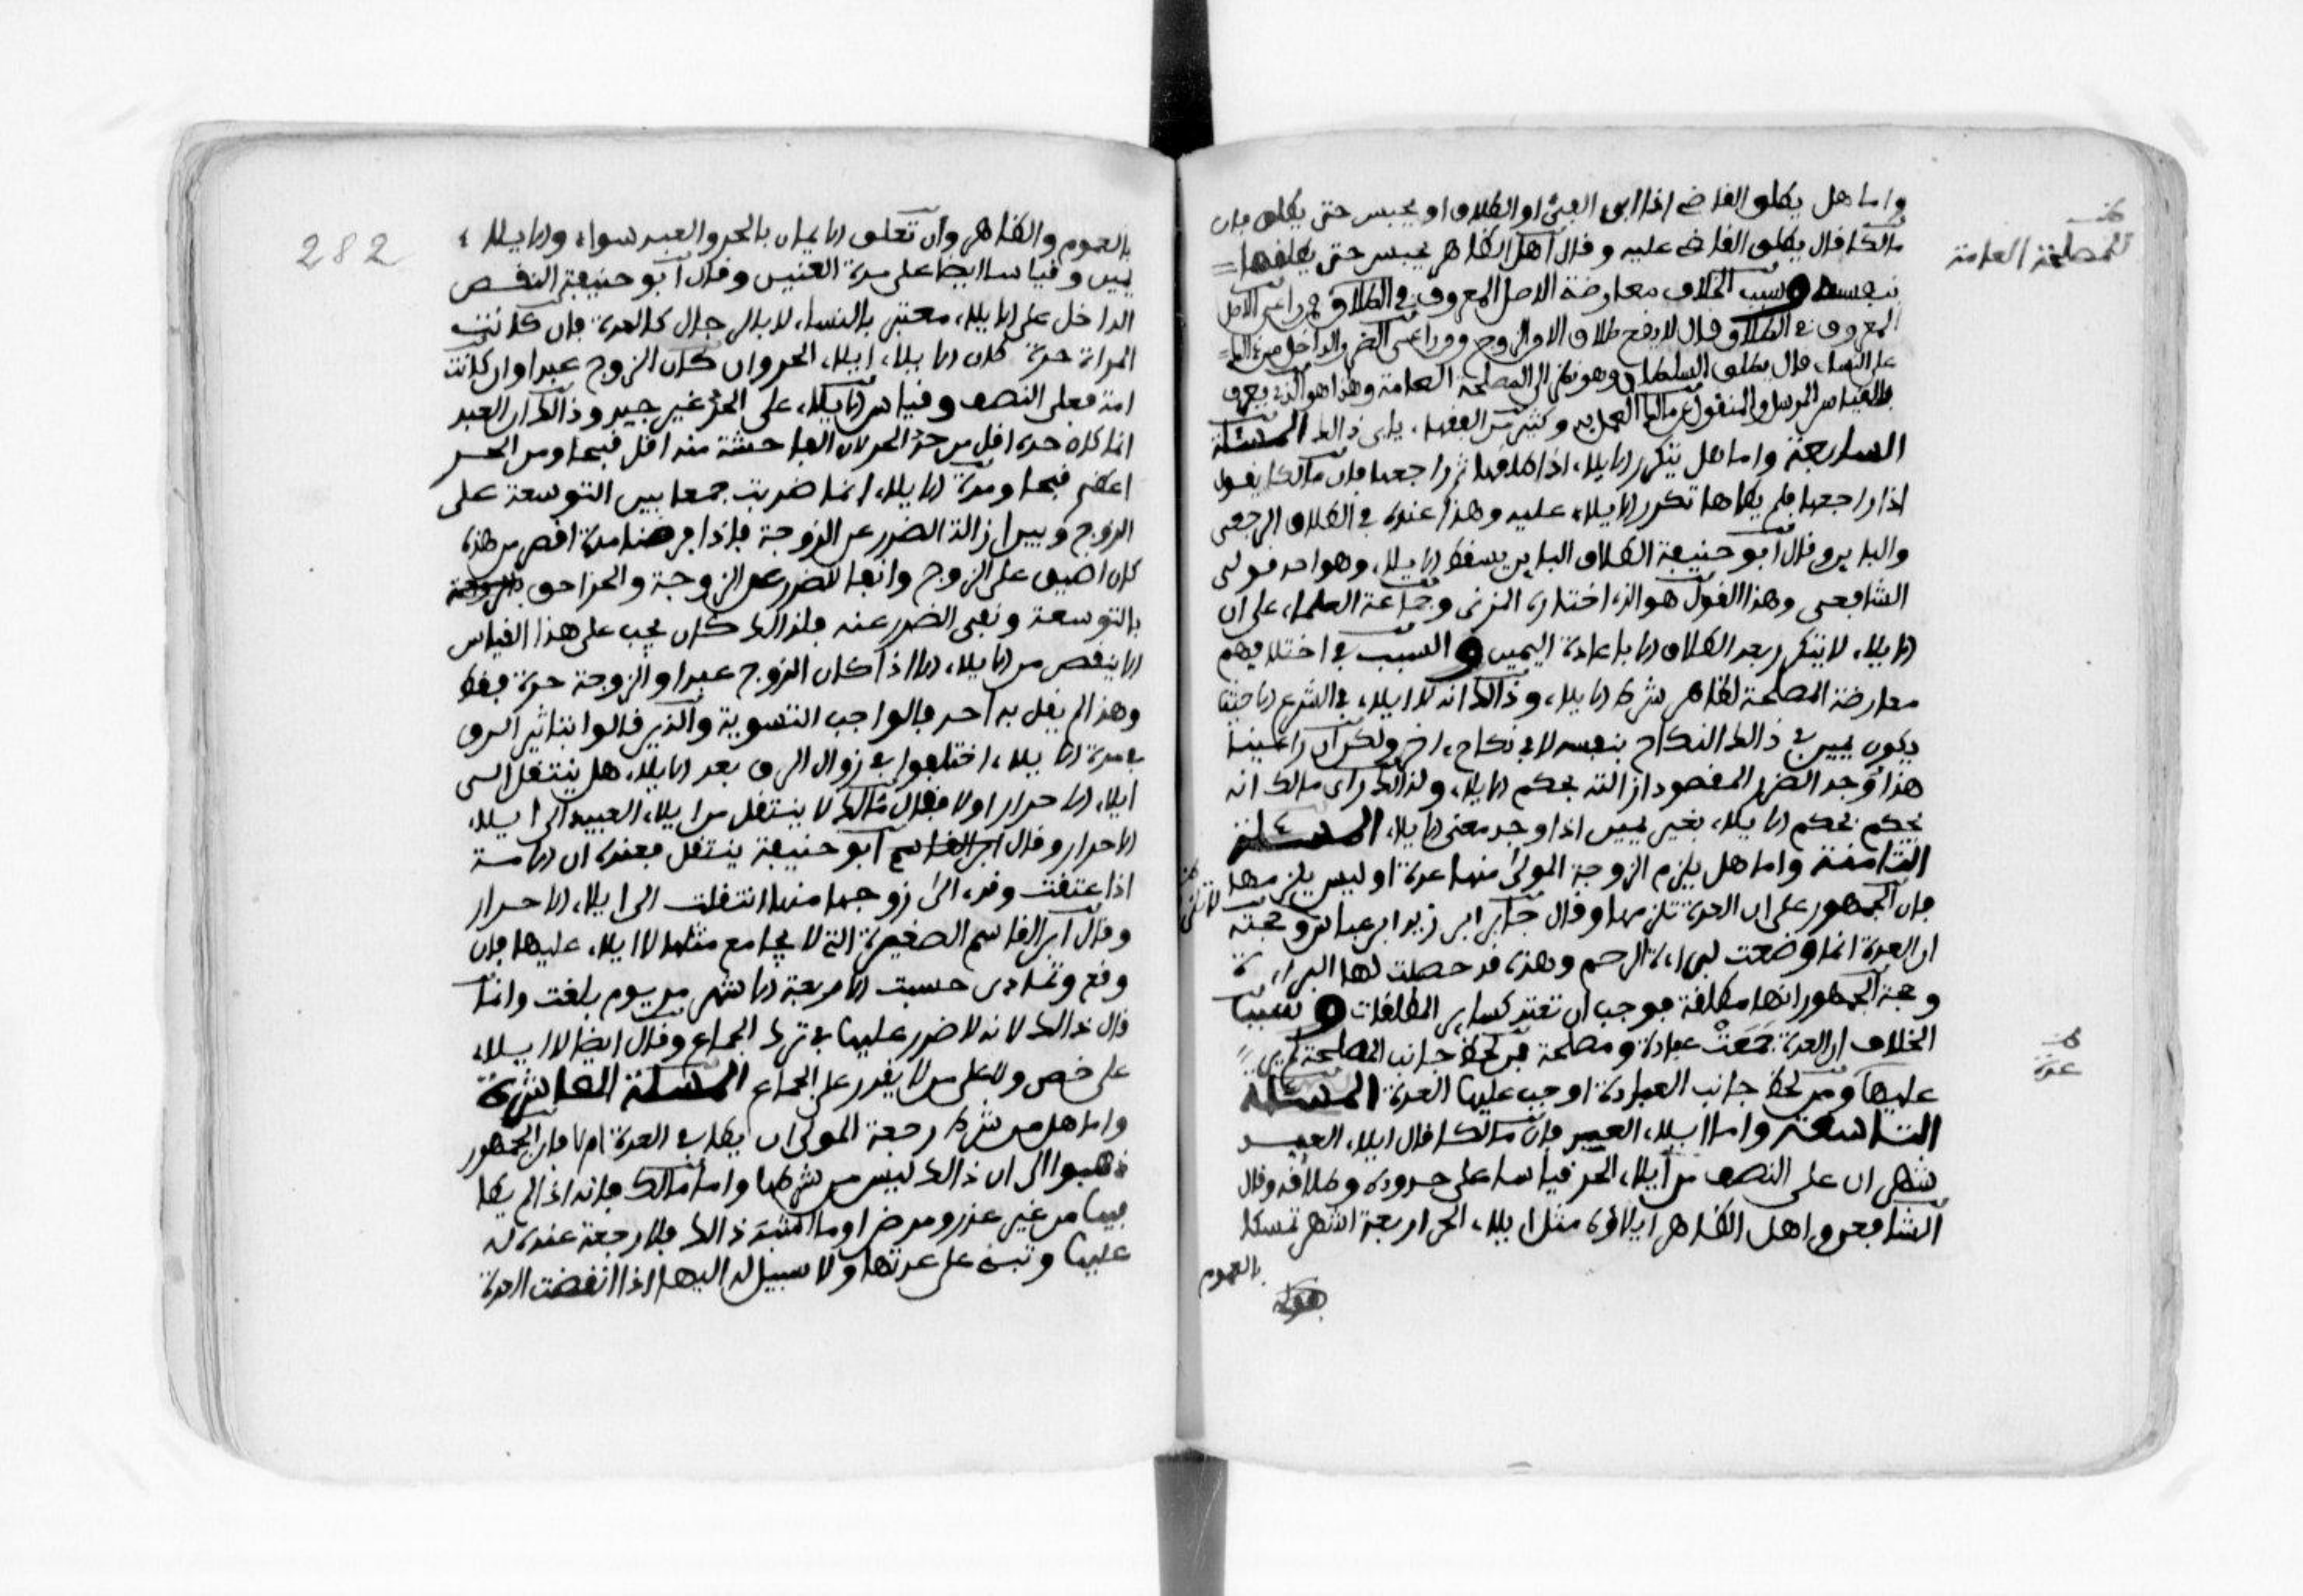 واما هل يطلق القاضي اذا ابى الفيئ او الطلاق او يحبس حتى يطلق فان
مالكا قال يطلق القاضي عليه وقال اهل الظاهر يحبس حتى يطلقها
بنفسه وسبب الخلاف معارضة الاصل المعروف في الطلاق فمن راعى الاصل
المعروف في الطلاق قال لا يقع طلاق الا من الزوج ومن راعى الضرر الداخل من ذالك
على النساء قال يطلق السلطان وهو نظر الى المصلحة العامة وهذا هو الذي يعرف
بالقياس المرسل والمنقول عن مالك العمل به وكثير من الفقهاء يابى ذالك المسئلة
السابعة واما هل يتكرر الايلاء اذا طلقها ثم راجعها فان مالكا يقول
اذا راجعها فلم يطاها تكرر الايلاء عليه وهذا عنده في الطلاق الرجعي
والباين وقال ابو حنيفة الطلاق الباين يسقط الايلاء وهو احد قولي
الشافعي وهذا القول هو الذي اختاره المزني وجماعة العلماء على ان
الايلاء لا يتكرر بعد الطلاق الا باعادة اليمين والسبب في اختلافهم
معارضة المصلحة لظاهر شرط الايلاء وذالك انه لا ايلاء في الشرع الا حيث
يكون يمين في ذالك النكاح بنفسه لا في نكاح اخر ولكن ان راعينا
هذا وجد الضرر المقصود ازالته بحكم الايلاء ولذالك راى مالك انه
يحكم بحكم الايلاء بغير يمين اذا وجد معنى الايلاء المسئلة
الثامنة واما هل يلزم الزوجة المولى منها عدة او ليس يلزمها
فان الجمهور على ان العدة تلزمها وقال جابر ابن زيد ابن عباس وحجته
ان العدة انما وضعت لبراءة الرحم وهذه قد حصلت لها البراءة
وحجة الجمهور انها مطلقة فوجب ان تعتد كساير المطلقات وسبب
الخلاف ان العدة جمعت عبادة ومصلحة فمن لحظ جانب المصلحة لم ير
عليها ومن لحظ جانب العبادة اوجب عليها العدة المسئلة
التاسعة واما ايلاء العبد فان مالكا قال ايلاء العبد
شهران على النصف من ايلاء الحر قياسا على حدوده وطلاقه وقال
الشافعي واهل الظاهر ايلاؤه مثل ايلاء الحر اربعة اشهر تمسكا
بالعموم
للمصلحة العامة
عدة
282
بالعموم والظاهر وان تعلق الايمان بالحر والعبد سواء والايلاء
يمين وقياسا ايضا على مدة العنين وقال ابو حنيفة النقص
الداخل على الايلاء معتبر بالنساء لا بالرجال كالعدة فان كانت
المراة حرة كان الايلاء ايلاء الحر وان كان الزوج عبدا وان كانت
امة فعلى النصف وقياس الايلاء على الحد غير جيد وذالك ان العبد
انما كان حده اقل من حد الحر لان الفاحشة منه اقل قبحا ومن الحر
اعظم قبحا ومدة الايلاء انما ضربت جمعا بين التوسعة على
الزوج وبين ازالة الضرر عن الزوجة فاذا فرضنا مدة اقصر من هذه
كان اضيق على الزوج وانفا للضرر عن الزوجة والحر احق
بالتوسعة ونفي الضرر عنه فلذالك كان يجب على هذا القياس
الا ينقص من الايلاء الا اذا كان الزوج عبدا والزوجة حرة فقط
وهذا لم يقل به احد فالواجب التسوية والذين قالوا بتاثير الرق
في مدة الايلاء اختلفوا في زوال الرق بعد الايلاء هل ينتقل الى
ايلاء الاحرار اولا فقال مالك لا ينتقل من ايلاء العبيد الى ايلاء
الاحرار وقال ابو حنيفة ينتقل فعنده ان الامة
اذا عتقت وقد الى زوجها منها انتقلت الى ايلاء الاحرار
وقال ابن القاسم الصغيرة التي لا يجامع مثلها لا ايلاء عليها فان
وقع وتمادى حسبت الاربعة الاشهر من يوم بلغت وانما
قال ذالك لانه لا ضرر عليها في ترك الجماع وقال ايضا لا ايلاء
على خصي ولا على من لا يقدر على الجماع المسئلة العاشرة
واما هل من شرط رجعة المولى ان يطا في العدة ام لا فان الجمهور
ذهبوا الى ان ذالك ليس من شرطها واما مالك فانه اذا لم يطا
فيها من غير عذر ومرض او ما اشبه ذالك فلا رجعة عنده له
عليها وتبقى على عدتها ولا سبيل له اليها اذا انقضت العدة